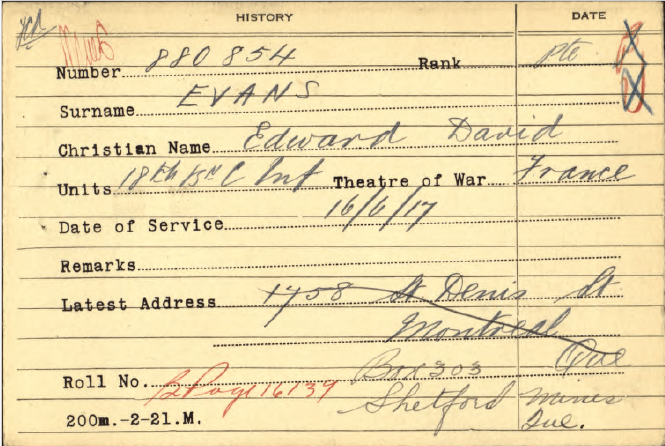 HISTORY DATE
Number 880854 Rank Pte
Surname EVANS
Christian Name Edward David
Units 18th Bn C Inf Theatre of War France
Date of Service 16/6/17
Remarks
Latest Address 1758 St Denis St
Montreal
Que
Roll No. B Page 16139 Box 303
Shetford Mines
200m.-2-21.M. Que.